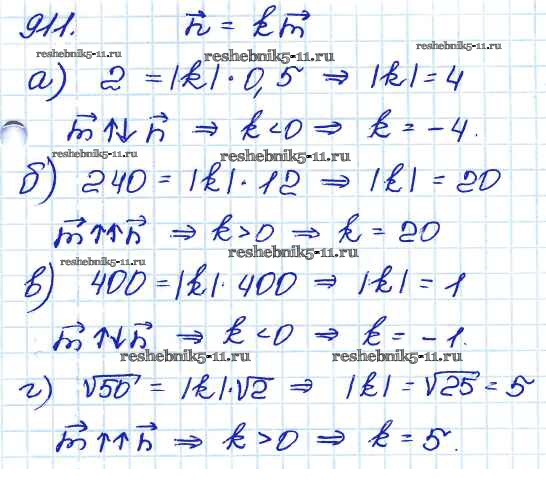 911. n⃗ = k m⃗
reshebnik5-11.ru reshebnik5-11.ru reshebnik5-11.ru
а) 2 = |k| · 0,5 ⇒ |k| = 4
m⃗ ↑↓ n⃗ ⇒ k < 0 ⇒ k = -4.
reshebnik5-11.ru reshebnik5-11.ru
б) 240 = |k| · 12 ⇒ |k| = 20
m⃗ ↑↑ n⃗ ⇒ k > 0 ⇒ k = 20
reshebnik5-11.ru reshebnik5-11.ru
в) 400 = |k| · 400 ⇒ |k| = 1
m⃗ ↑↓ n⃗ ⇒ k < 0 ⇒ k = -1.
reshebnik5-11.ru reshebnik5-11.ru
г) √50 = |k| · √2 ⇒ |k| = √25 = 5
m⃗ ↑↑ n⃗ ⇒ k > 0 ⇒ k = 5.